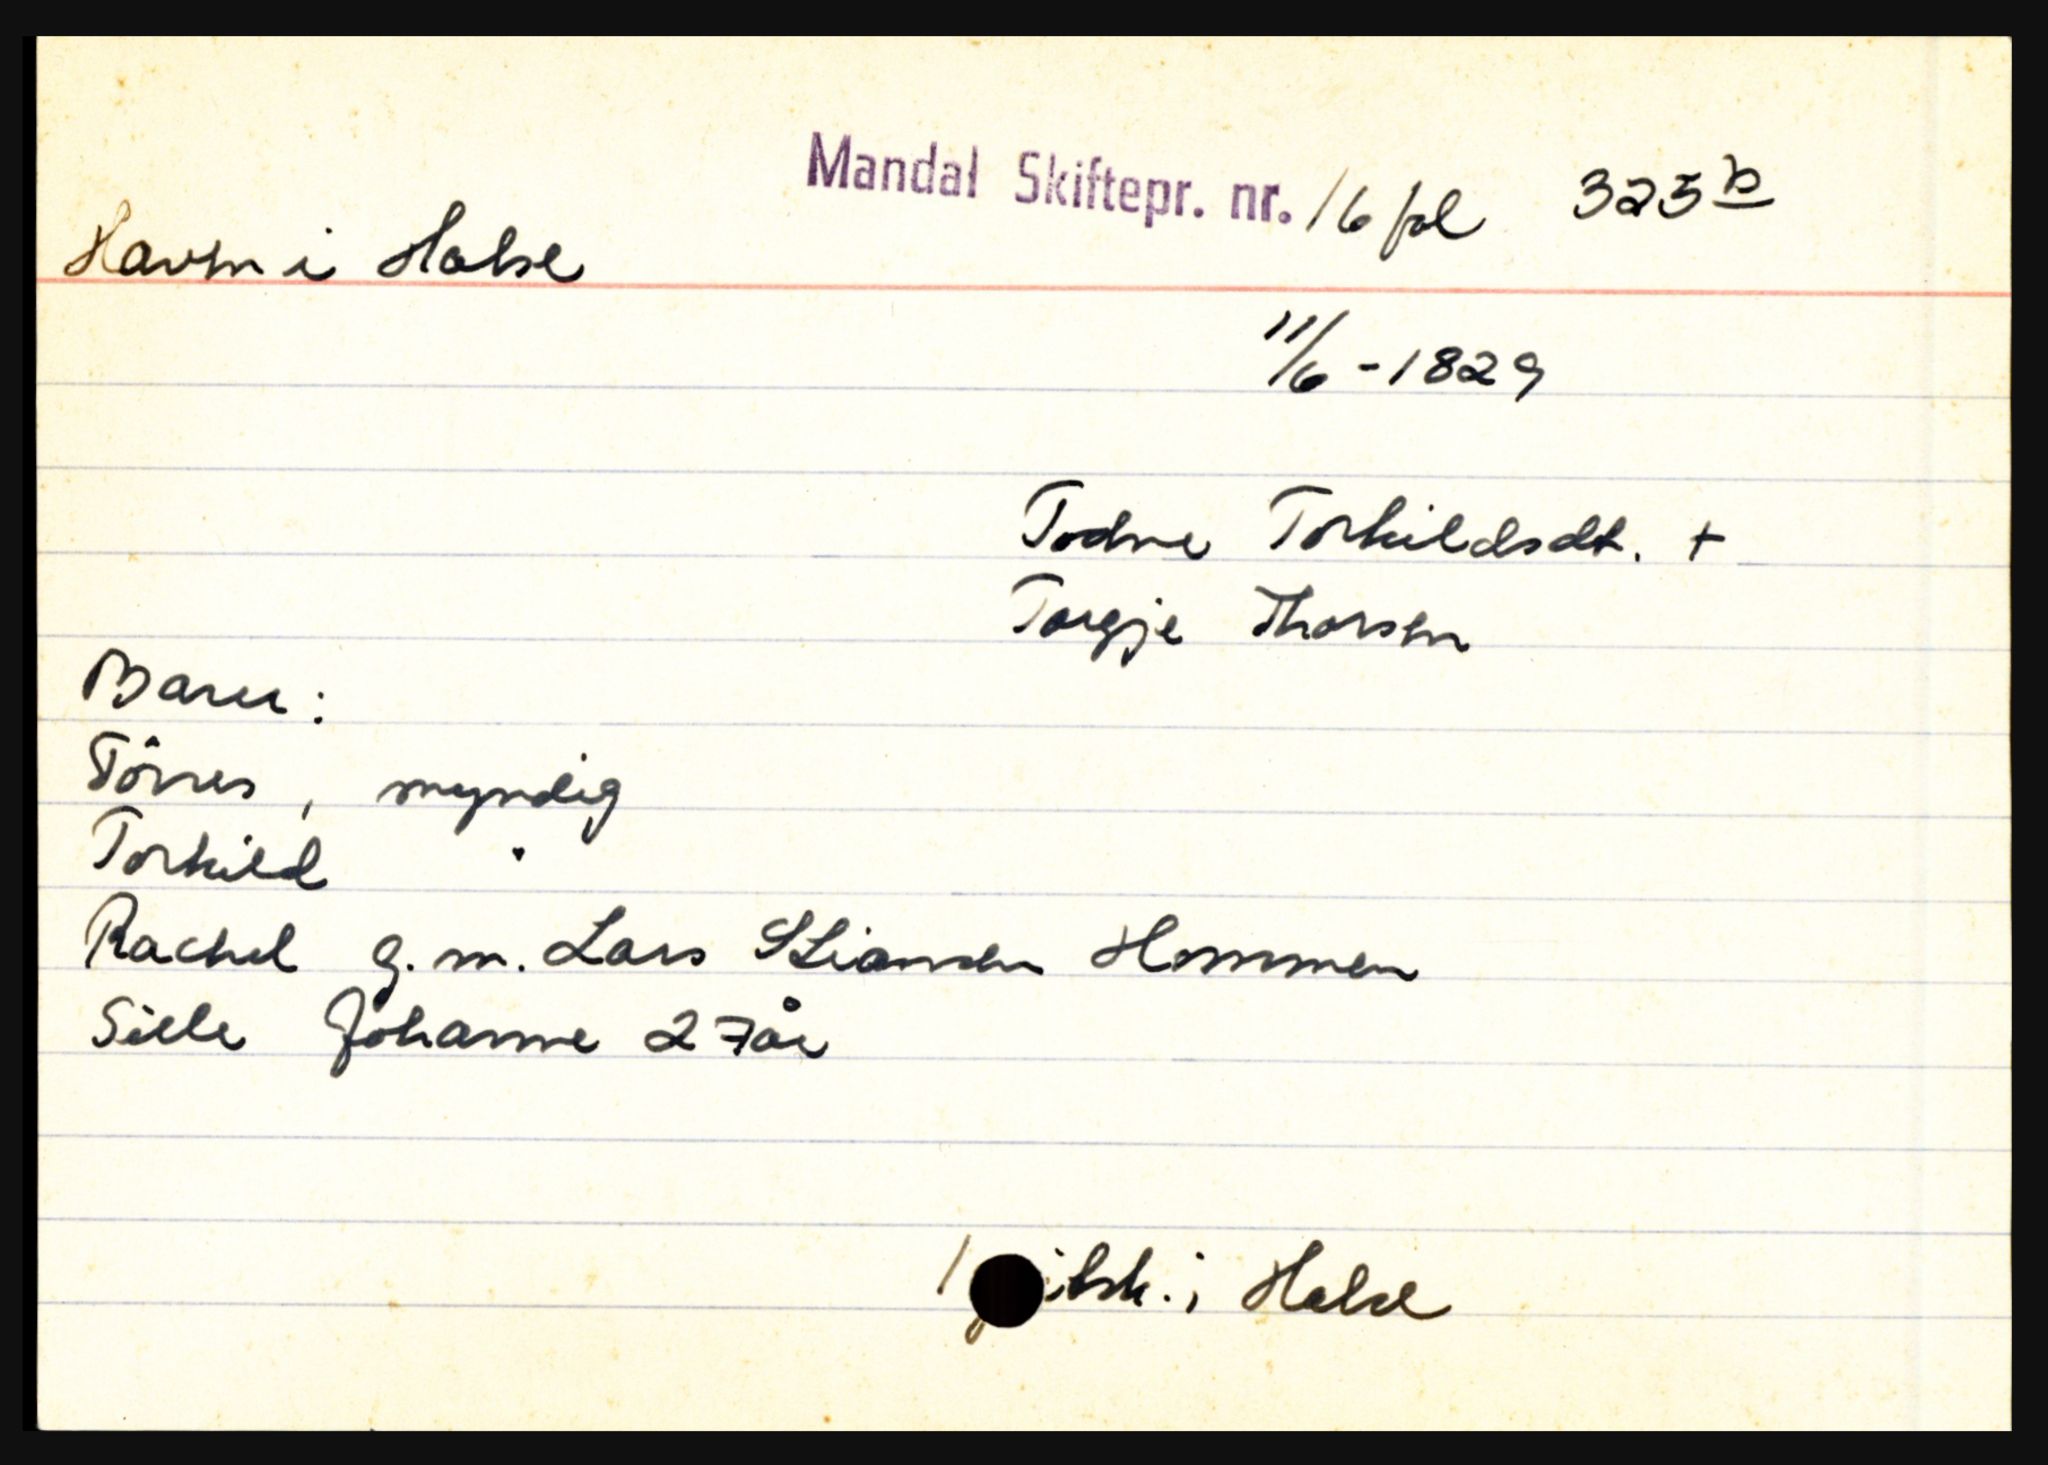 Mandal Skiftepr. nr. 16 fol 325b
Havn i Halse
11/6 - 1829
Todne Torkildsdt. +
Torgje Thorsen
Barn:
Törres, myndig
Torkild "
Rachel g.m. Lars Stiansen Hommen
Sille Johanne 27 år
i Halse